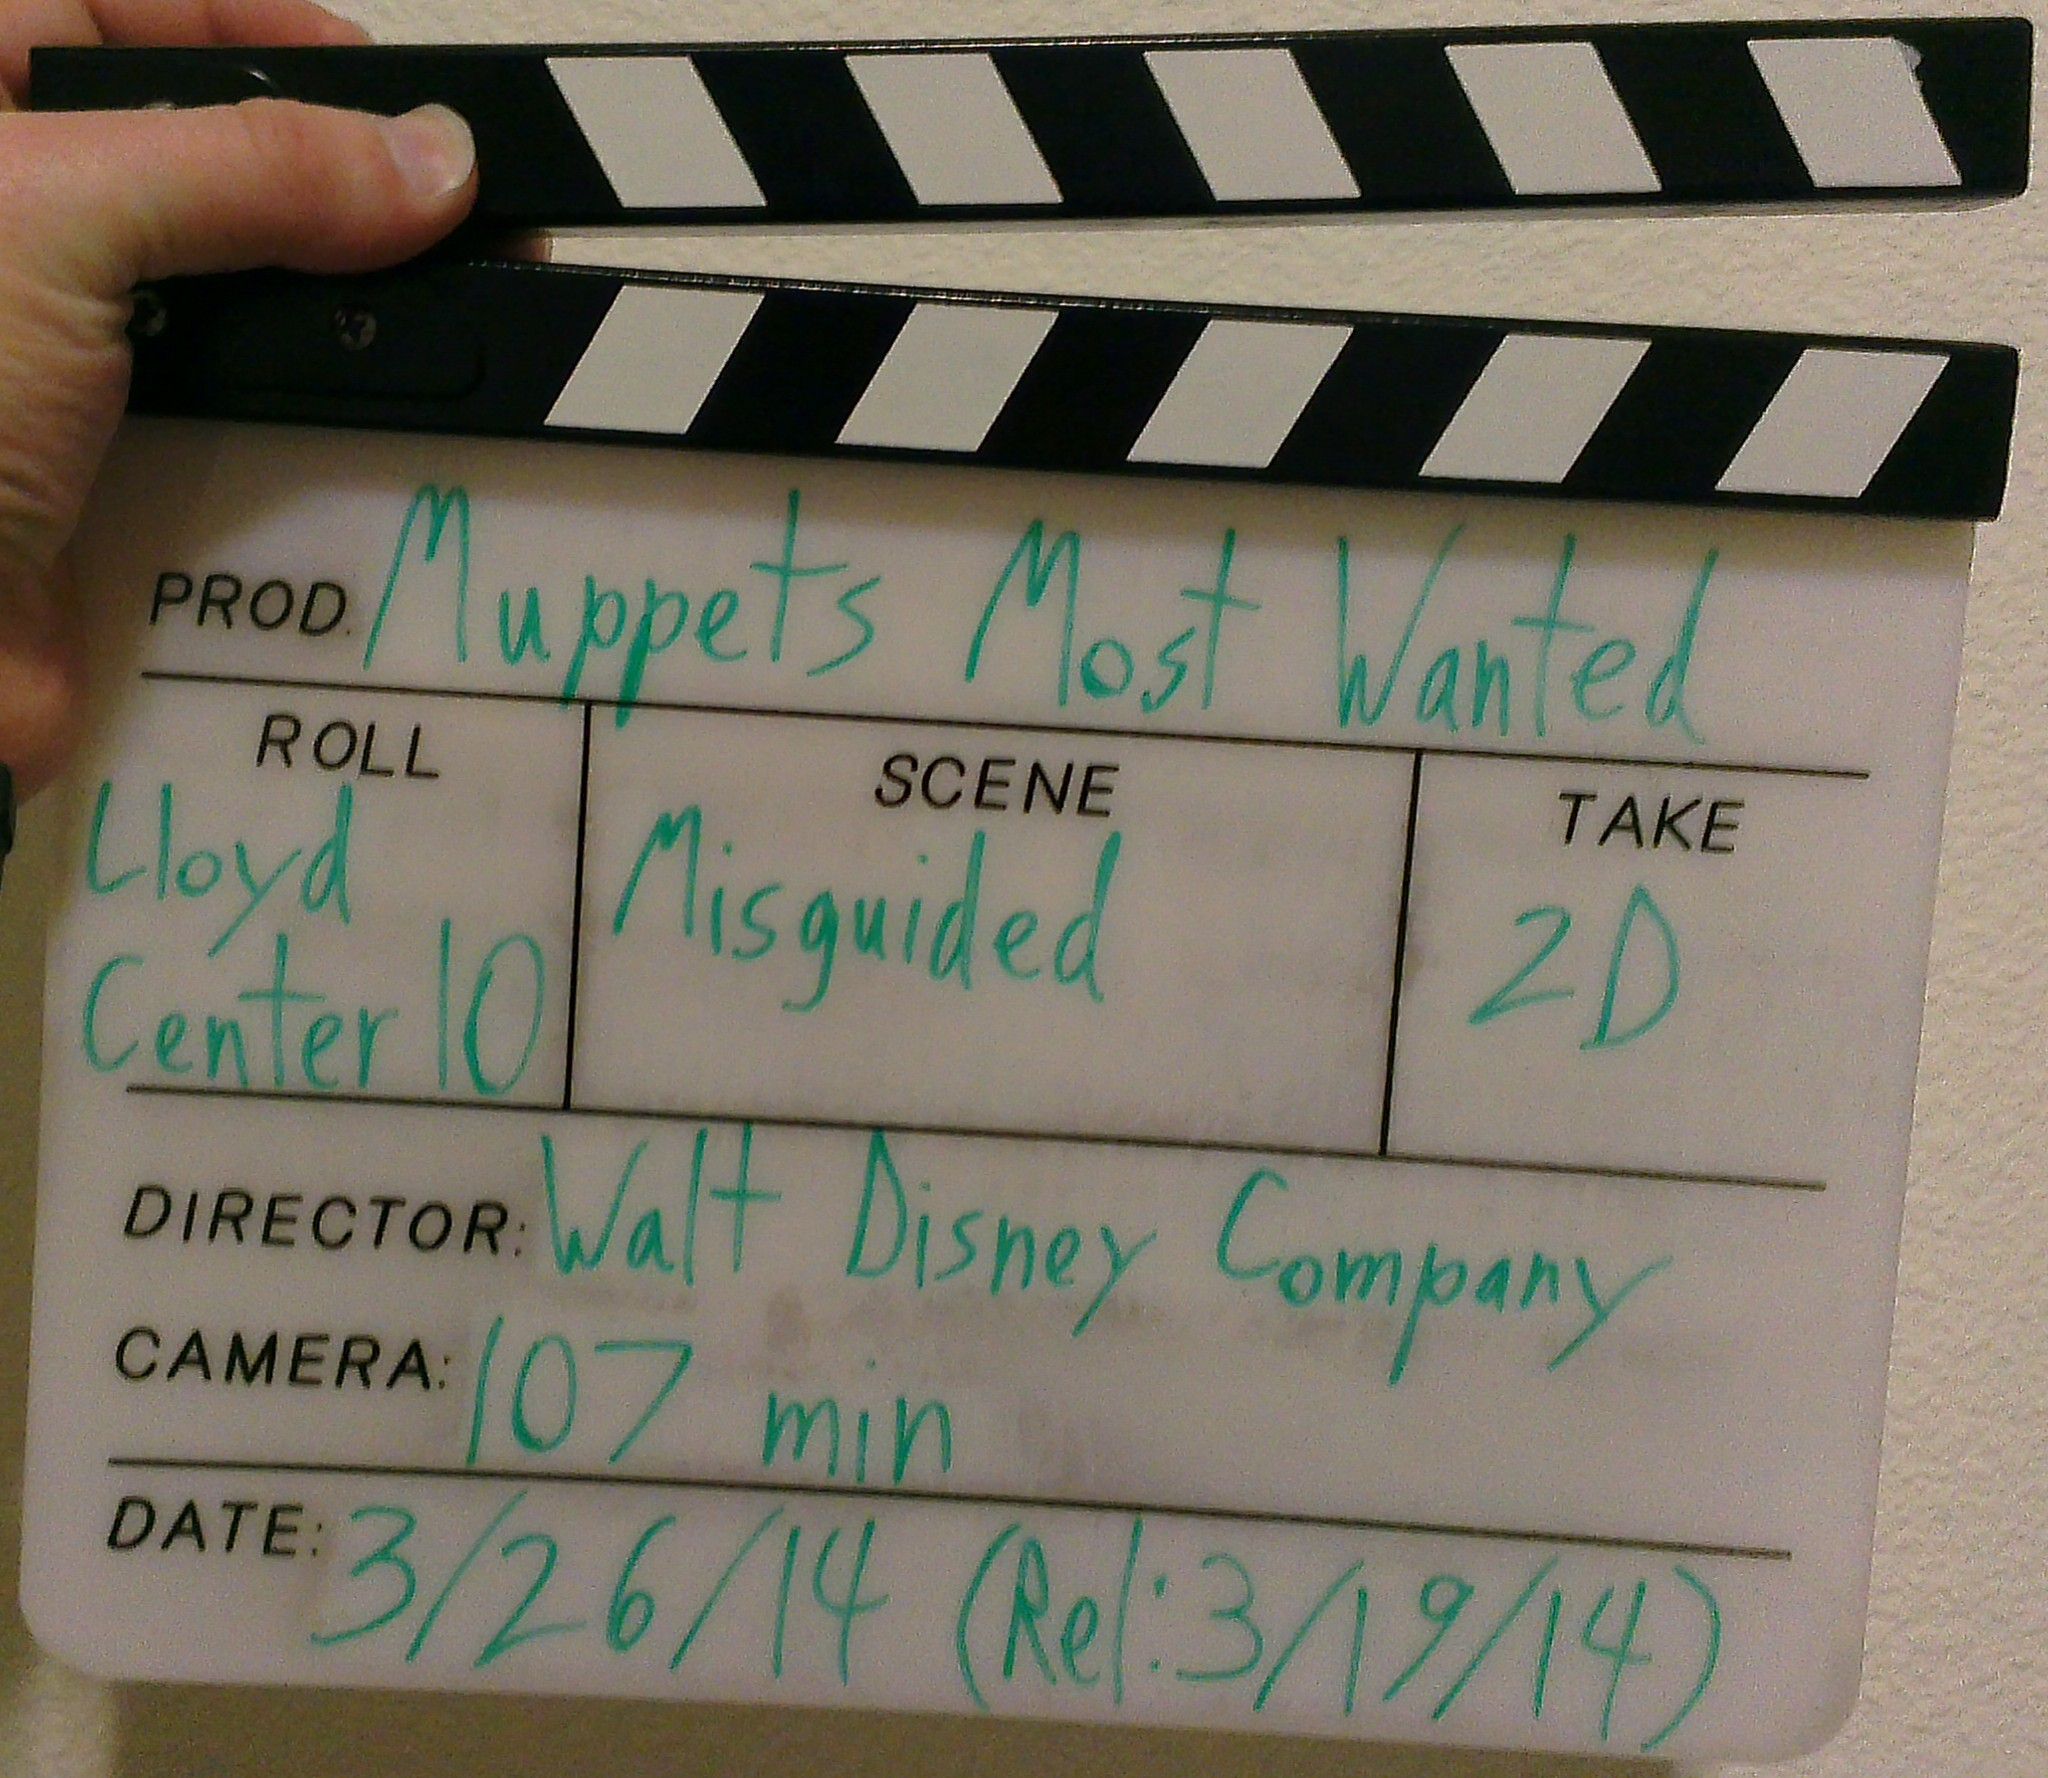 PROD. Muppets Most Wanted
ROLL
Lloyd
Center 10
SCENE
Misguided
TAKE
2D
DIRECTOR: Walt Disney Company
CAMERA: 107 min
DATE: 3/26/14 (Rel: 3/19/14)